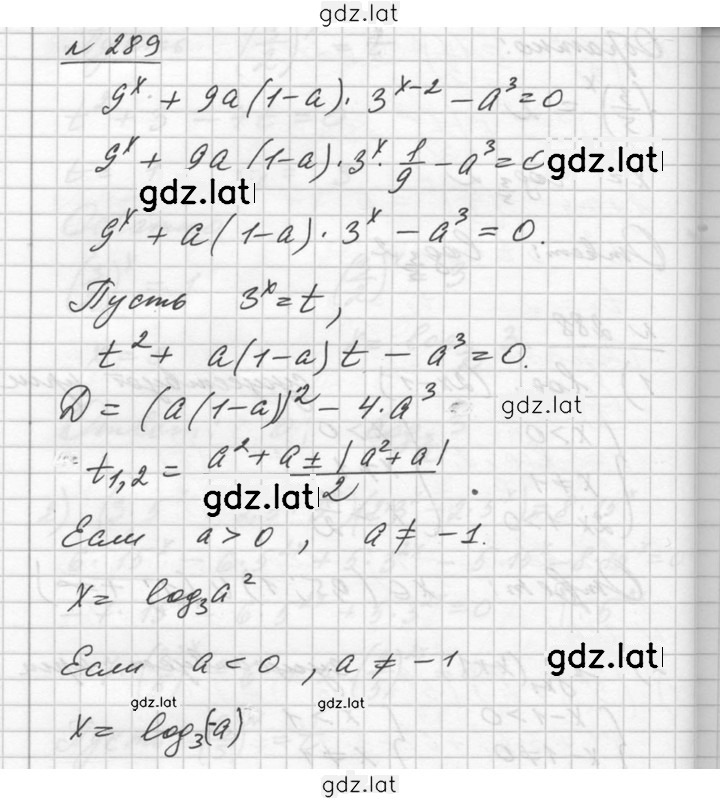 gdz.lat
№ 289
9^x + 9a(1-a)·3^(x-2) - a^3 = 0
9^x + 9a(1-a)·3^x·1/9 - a^3 = 0
gdz.lat
gdz.lat
9^x + a(1-a)·3^x - a^3 = 0.
Пусть 3^x = t,
t^2 + a(1-a)t - a^3 = 0.
Д = (a(1-a))^2 - 4·a^3
gdz.lat
t_1,2 = (a^2 + a ± |a^2 + a|)/2.
gdz.lat
Если a > 0, a ≠ -1.
x = log_3 a^2
Если a < 0, a ≠ -1
gdz.lat
gdz.lat gdz.lat
x = log_3(-a)
gdz.lat